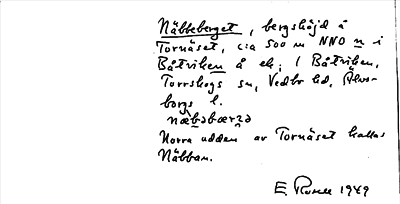 Näbbeberget, bergshöjd å
Tornäset, c:a 500 m NNO n i
Båtviken å ek; / Båtviken,
Torrskogs sn, Vedbo hd, Älvs-
borgs l.
næb̬əbærʒə
Norra udden av Tornäset kallas
Näbban.
E. 1949